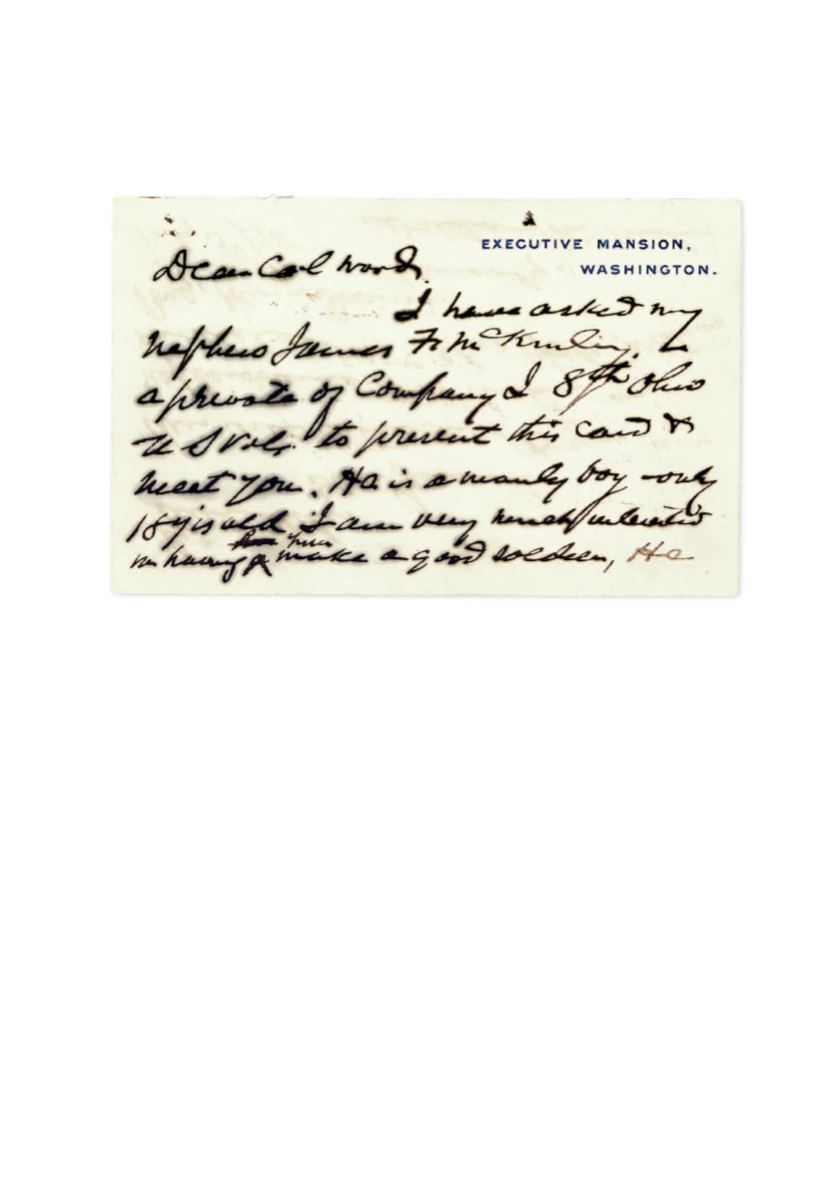 EXECUTIVE MANSION,
WASHINGTON.
Dear Col Wood,
I have asked my
nephew James F. McKinley,
a private of Company I 8th Ohio
U S Vols. to present this card &
meet you. He is a manly boy - only
18 yrs old I am very much interested
in having him make a good soldier, He